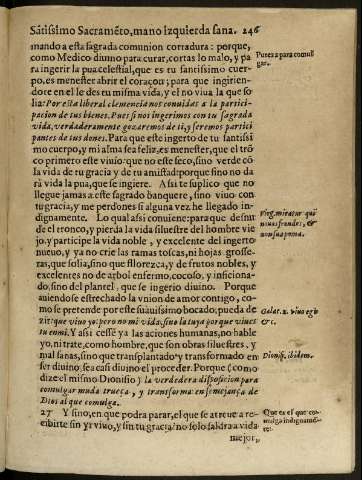 Sãtissimo Sacramẽto, mano Izquierda sana. 246
mando a esta sagrada comunion cor radura: porque,
como Medico diuino para curar, cortas lo malo, y pa
ra ingerir la pua celestial, que es tu santissimo cuer-
po, es menester abrir el coraçon; para que ingirien-
dore en el le des tu misma vida, y el no viua la que so
lia: Por esta liberal clemencia nos conuidas a la partici-
pacion de tus bienes. Pues si nos ingerimos con tu sagrada
vida, verdaderamente gozaremos de ti, y seremos partici
pantes de tus dones. Para que este ingerto de tu santissi
mo cuerpo, y mi alma sea feliz, es menester, que el trõ
co primero este viuo: que no este seco, sino verde cõ
la vida de tu gracia y de tu amistad: porque sino no da
rà vida la pua, que se ingiere. Assi te suplico que no
llegue jamas a este sagrado banquete, sino viuo con
tu gracia, y me perdones si alguna vez he llegado in-
dignamente. Lo qual assi comiene: para que desnu
de el tronco, y pierda la vida siluestre del hombre vie
jo, y participe la vida noble, y excelente del ingerto
nueuo, y ya no crie las ramas toscas, ni hojas grosse-
ras, que solia, sino que florezca, y de frutos nobles, y
excelentes no de arbol enfermo, cocoso, y inficiona-
do, sino del plantel, que se ingerio diuino. Porque
auiendose estrechado la vnion de amor contigo, co-
mo se pretende por este suauissimo bocado, pueda de
zir: que viuo yo: pero no mi vida, sino la tuya porque viues
tu en mi. Y assi cesse ya las acciones humanas, no hable
yo, ni trate, como hombre, que son obras siluestres, y
mal sanas, sino que transplantado y transformado en
ser diuino, sea casi diuino el proceder. Porque (como
dize el mismo Dionisio) la verdadera disposicion para
comulgar muda trueca, y transforma en semejança de
Dios al que comulga.
27 Y sino, en que podra parar, el que se atreue a re-
cibirte sin yr viuo, y sin tu gracia? no solo saldra a vida
mejor,
Puresa para comul
gar.
Virg. miratur què
nouas frondes, &
non sua poma.
Galat. 2. viuo ego
&c.
Dionis. ibidem.
Que es el que co-
mulga indignamẽ-
te: